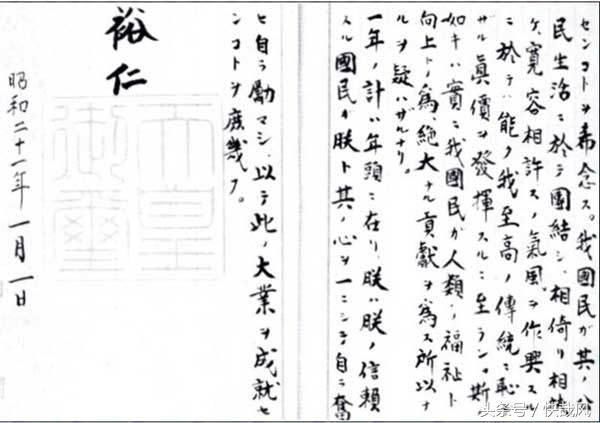 センコトヲ希念ス。我國民ガ其ノ公
民生活ニ於テ團結シ、相倚リ相扶
ケ、寬容相許スノ氣風ヲ作興スル
ニ於テハ、能ク我至高ノ傳統ニ恥
ザル眞價ヲ發揮スルニ至ラン。斯
如キハ實ニ我國民ガ人類ノ福祉ト
向上トノ爲、絶大ナル貢獻ヲ爲ス所以ナ
ルヲ疑ハザルナリ。
一年ノ計ハ年頭ニ在リ、朕ハ朕ノ信賴
スル國民ガ朕ト其ノ心ヲ一ニシテ、自ラ奮
ヒ自ラ勵マシ、以テ此ノ大業ヲ成就セ
ンコトヲ庶幾フ。
裕仁
天皇御璽
昭和二十一年一月一日
头条号/快哉网